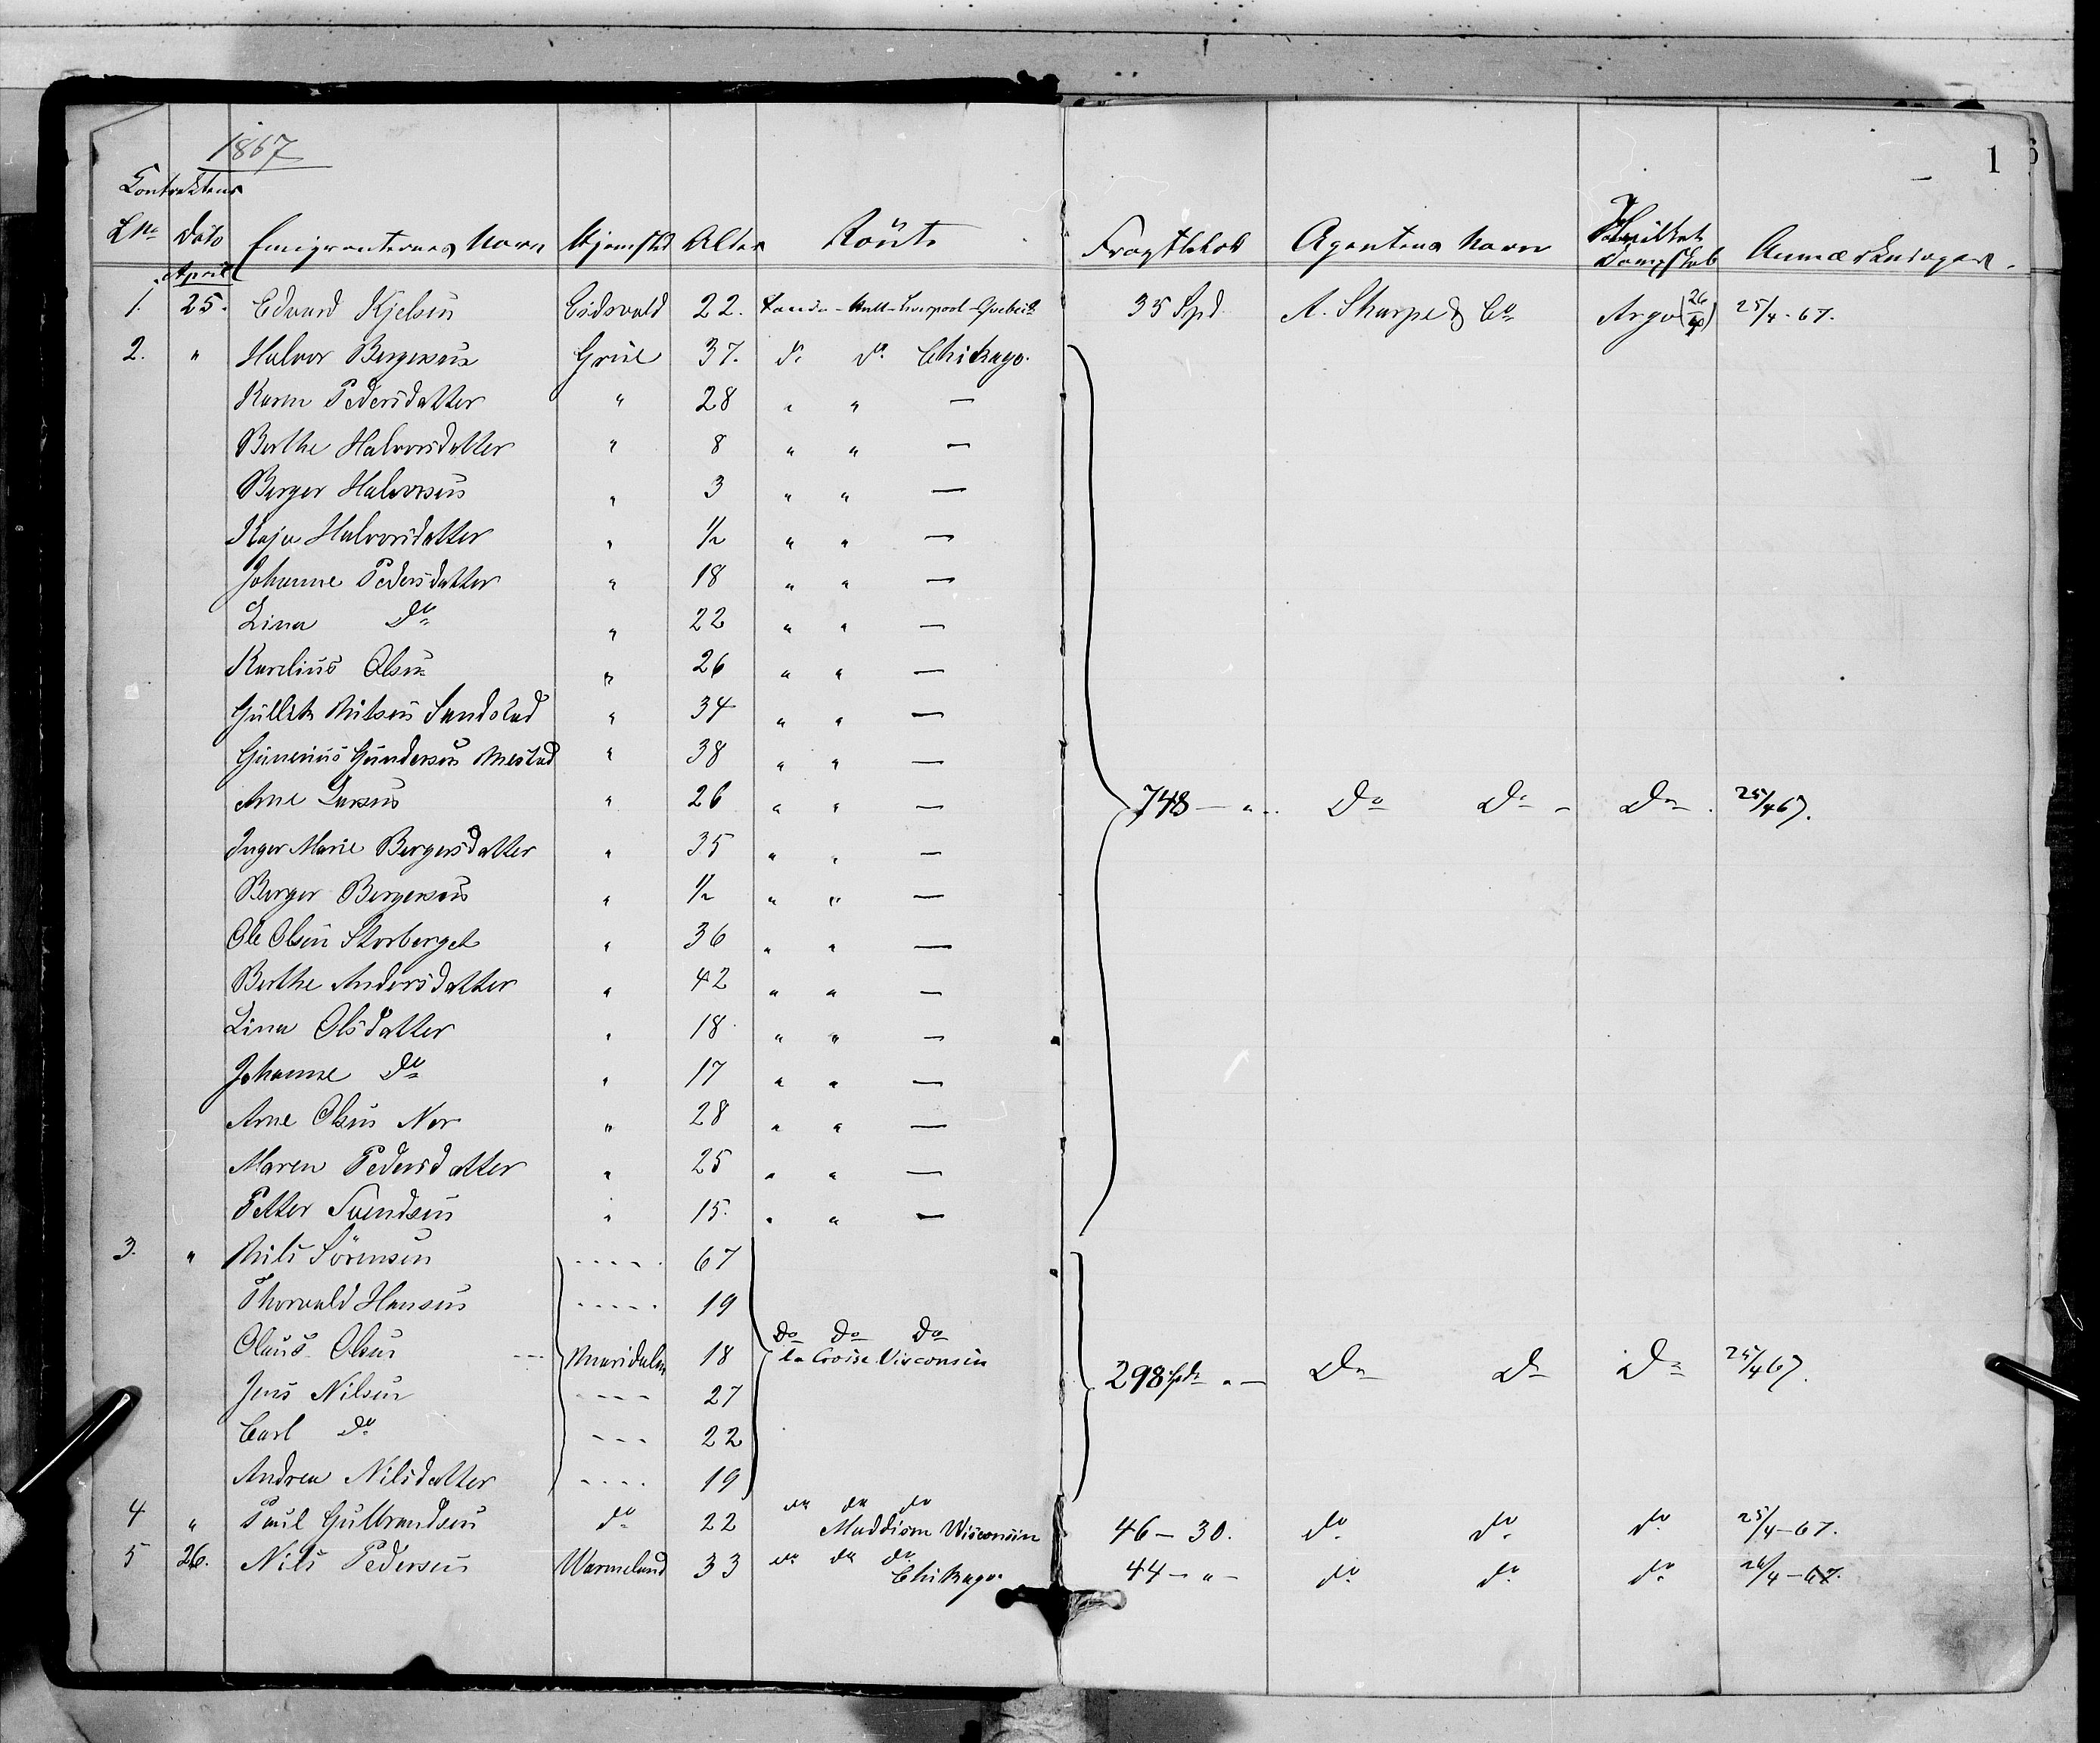 1867
1
Contraktens
LNo Dato Emigranternes Navn Hjemsted Alder Route Fragtbeløb Agentens Navn Hvilket Dampskib Anmærkninger.
April
1. 25. Edvard Kjelsen Eidsvold 22. – Hull – Liverpool – Quebec 35 Spd. A. Sharpe & Co Argo (26/4) 25/4-67.
2. " Halvor Bergersen Grue 37. do do Chikago.
Karen Pedersdatter " 28 " " —
Berthe Halvorsdatter " 8 " " —
Berger Halvorsen " 3 " " —
Kaja Halvorsdatter " 1/2 " " —
Johanne Pedersdatter " 18 " " —
Lina Do " 22 " " —
Karelius Olsen " 26 " " —
Gullik Nilsen Sandstad " 34 " " —
Gunerius Gundersen Mestad " 38 " " —
Arne Larsen " 26 " " — 748 — " - Do Do - Do . 25/4 67.
Inger Marie Bergersdatter " 35 " " —
Berger Bergersen " 1/2 " " —
Ole Olsen Storberget " 36 " " —
Berthe Andersdatter " 42 " " —
Lina Olsdatter " 18 " " —
Johanne Do " 17 " " —
Arne Olsen Nor " 28 " " —
Maren Pedersdatter " 25 " " —
Petter Svendsen " 15. " " —
3. " Nils Sörensen - - - - - 67
Thorvald Hansen - - - - - 19
Do Do Do
Olaus Olsen - - - Maridalen 18 la Croise Visconsin 298 Spd. " — Do Do Do 25/4 67.
Jens Nilsen - - - - 27
Carl Do - - - 22
Andrea Nilsdatter - - - - 19
do do do
4 " Paul Gulbrandsen do 22 Maddison Wisconsin 46 – 30. do do do 25/4-67.
do do do
5 26. Nils Pedersen Warmeland 33 Chikago. 44 – " – do do do 26/4-67.